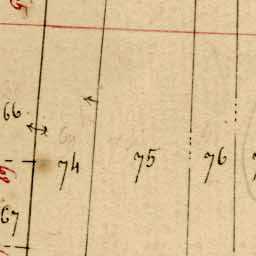 66
74 75 76
67